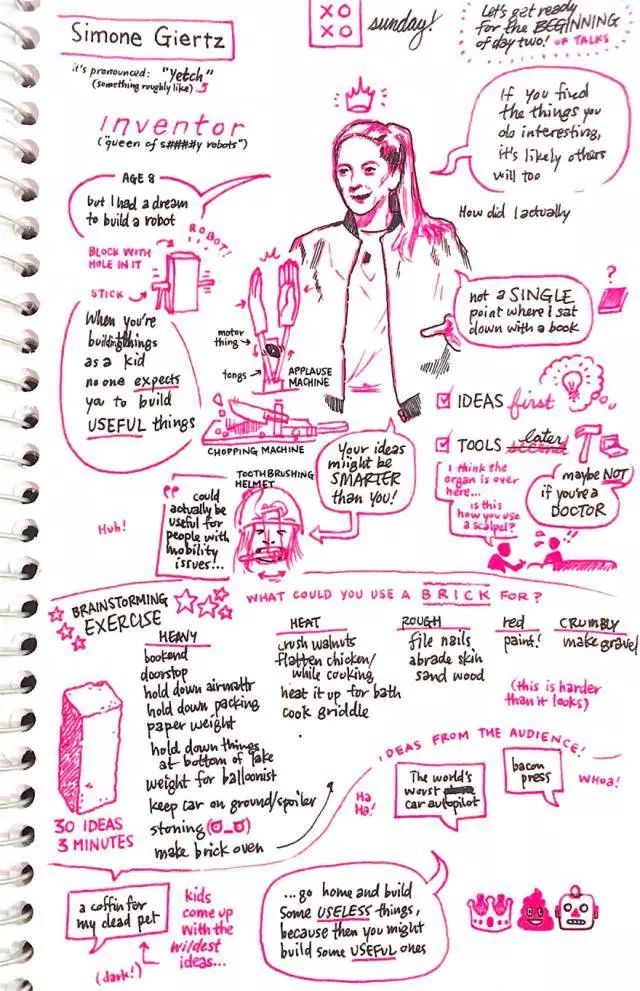 Simone Giertz
XO
XO
sunday!
Let's get ready
for the BEGINNING
of day two! OF TALKS
it's pronounced: "Yetch"
(something roughly like)
inventor
("queen of s####y robots")
If you find
the things you
do interesting,
it's likely others
will too
AGE 8
but I had a dream
to build a robot
How did I actually
ROBOT!
BLOCK WITH
HOLE IN IT
STICK
not a SINGLE
point where I sat
down with a book
?
When you're
building things
as a kid
no one expects
you to build
USEFUL things
motor
thing
tongs
APPLAUSE
MACHINE
CHOPPING MACHINE
IDEAS first
TOOLS later
Your ideas
miight be
SMARTER
than you!
I think the
organ is over
here...
is this
how you use
a scalpel?
maybe NOT
if you're a
DOCTOR
TOOTHBRUSHING
HELMET
"could
actually be
useful for
people with
mobility
issues...
Huh!
BRAINSTORMING
EXERCISE
WHAT COULD YOU USE A BRICK FOR?
HEAVY
bookend
doorstop
hold down airmattr
hold down packing
paper weight
hold down things
at bottom of lake
weight for balloonist
keep car on ground/spoiler
stoning (ಠ_ಠ)
make brick oven
HEAT
crush walnuts
flatten chicken/
while cooking
heat it up for bath
cook griddle
ROUGH
file nails
abrade skin
sand wood
red
paint!
CRUMBLY
make gravel
(this is harder
than it looks)
30 IDEAS
3 MINUTES
IDEAS FROM THE AUDIENCE!
Ha
Ha!
The world's
worst
car autopilot
bacon
press
Whoa!
a coffin for
my dead pet
(dark!)
kids
come up
with the
wildest
ideas...
...go home and build
some USELESS things,
because then you might
build some USEFUL ones